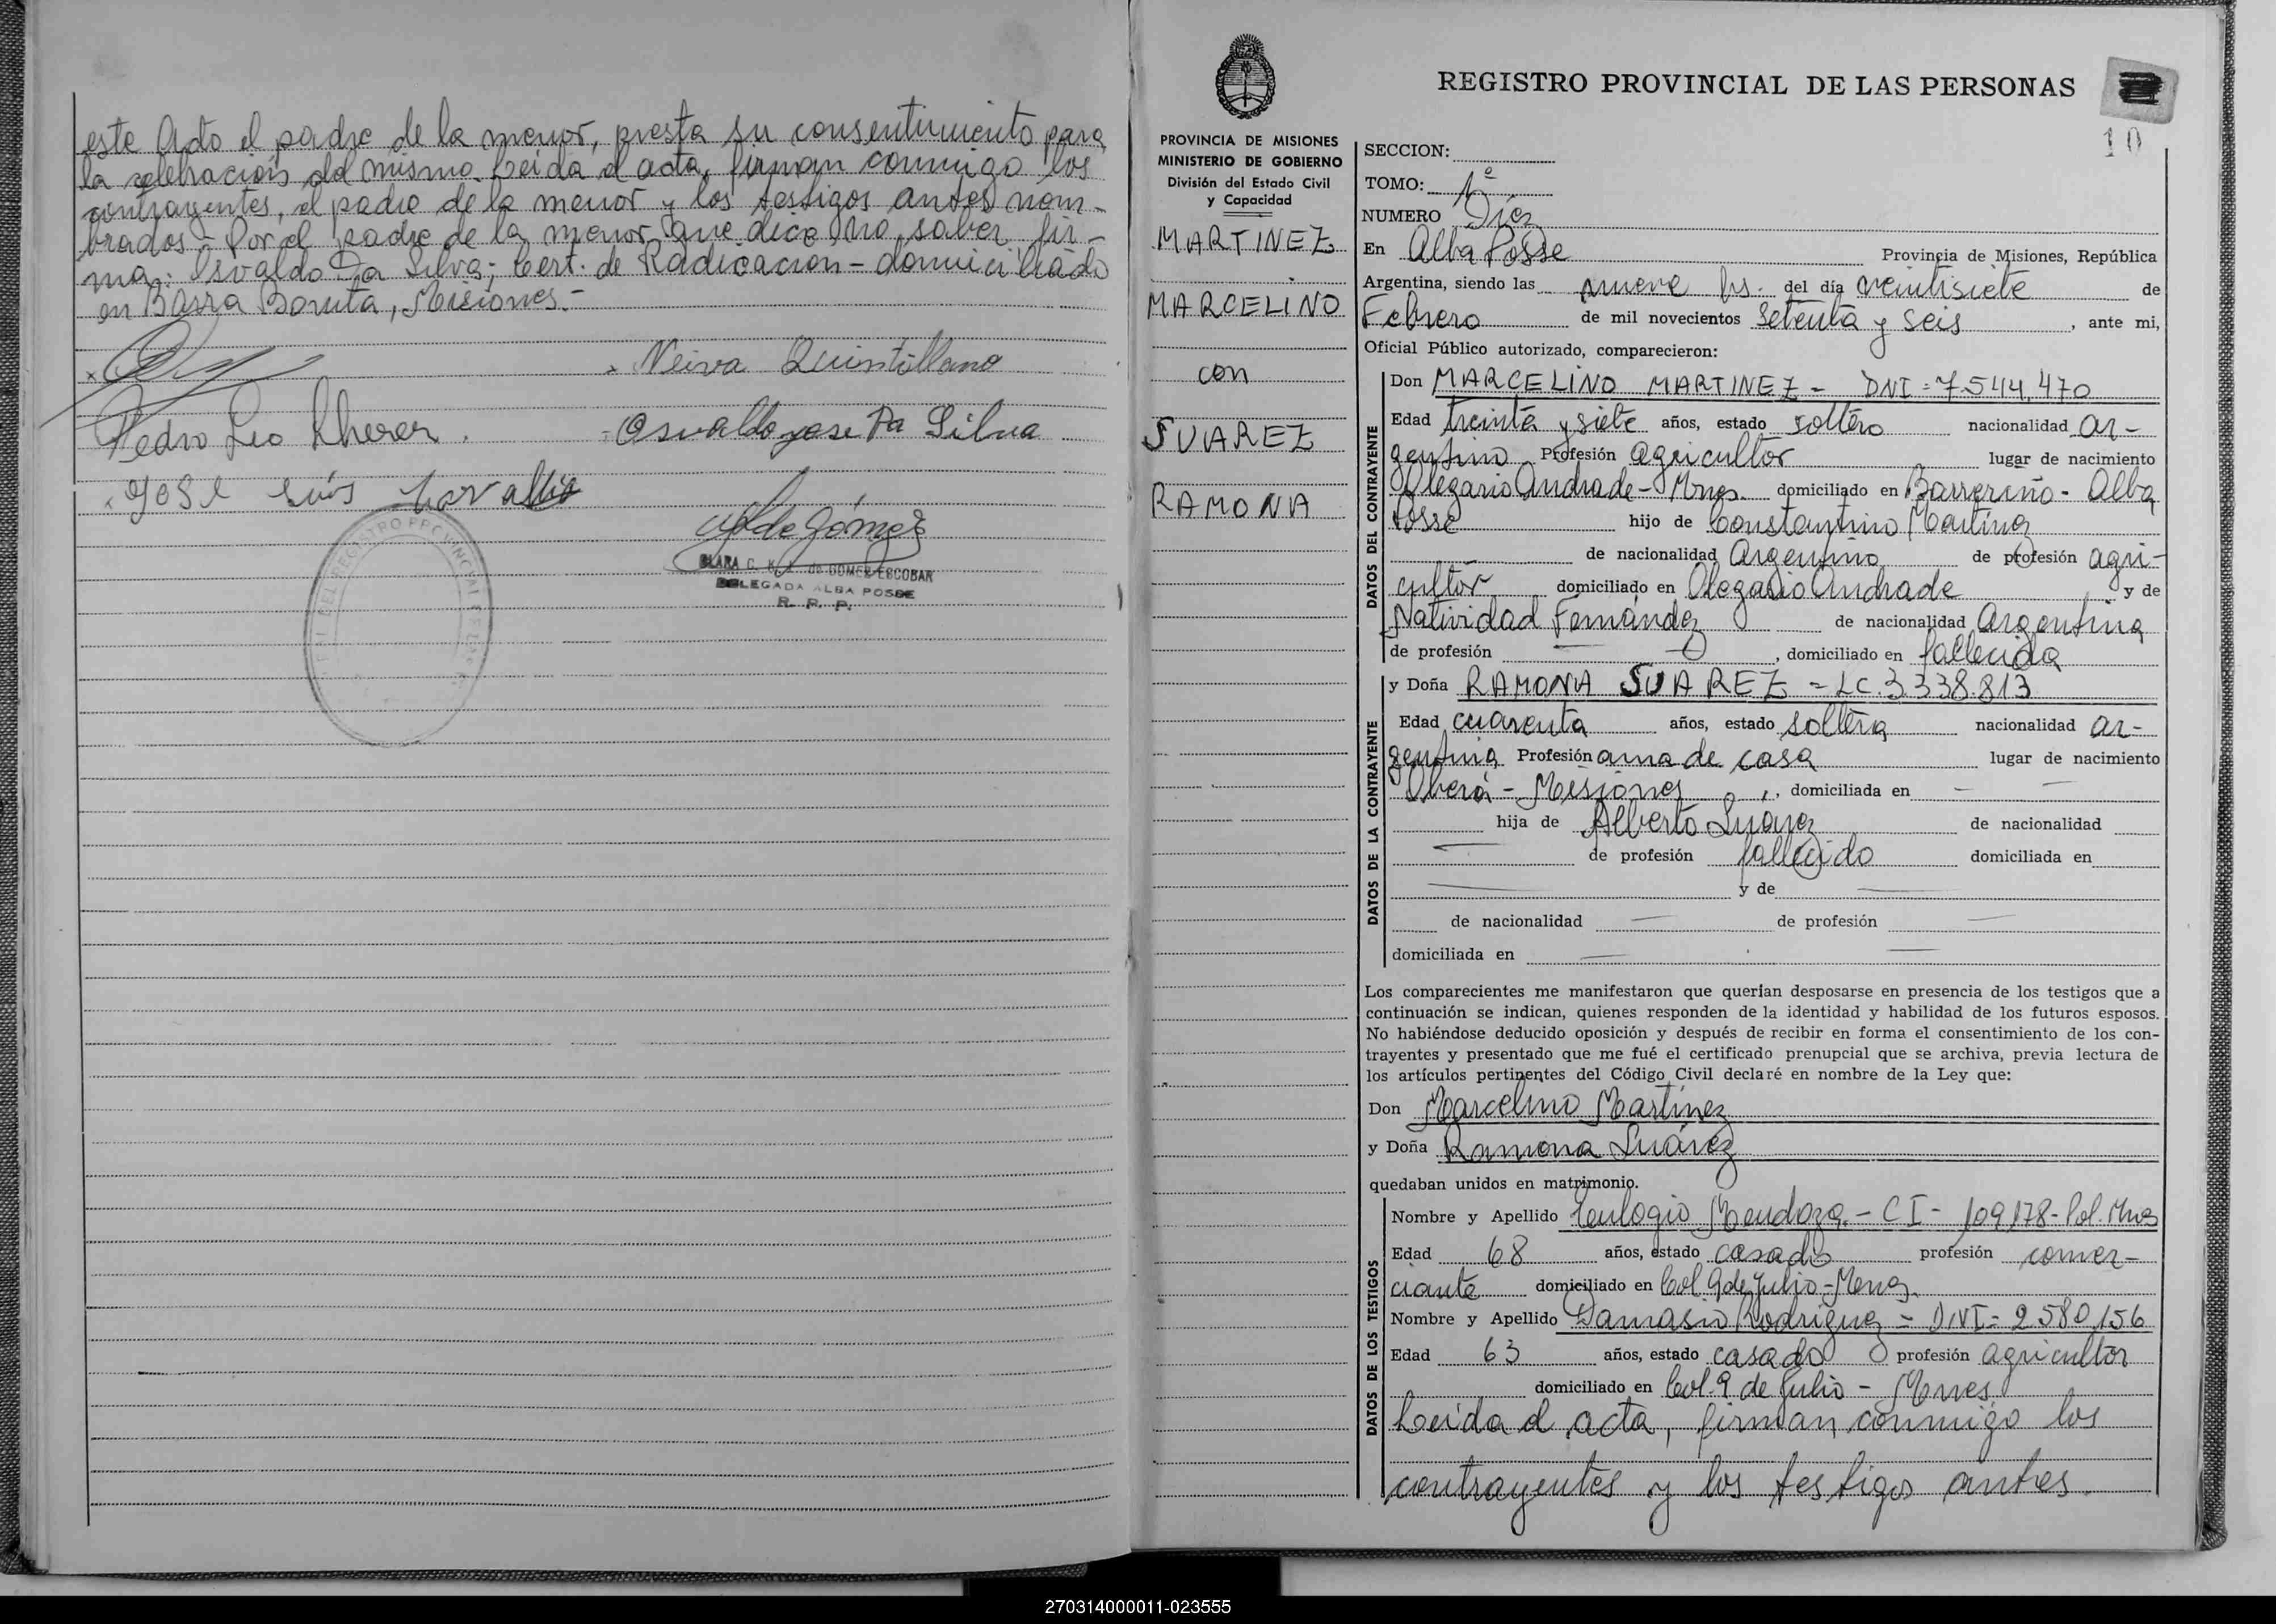 este Acto el padre de la menor, presta su consentimiento para
la celebración del mismo. Leída el acta, firman conmigo los
contrayentes, el padre de la menor y los testigos antes nom-
brados - Por el padre de la menor que dice no saber fir-
ma: Osvaldo Da Silva; Cert. de Radicación - domiciliado
en Barra Bonita, Misiones.-
Neiva Quintillano
Pedro Leo
Osvaldo Jose Da Silva
JOSE Luis
de Gómez
CLARA C. de GOMEZ ESCOBAR
DELEGADA ALBA POSSE
R. P. P.
REGISTRO PROVINCIAL DE LAS PERSONAS
10
PROVINCIA DE MISIONES
MINISTERIO DE GOBIERNO
División del Estado Civil
y Capacidad
MARTINEZ
MARCELINO
con
SUAREZ
RAMONA
SECCION:
TOMO: 1º
NUMERO Diéz
En Alba Posse Provincia de Misiones, República
Argentina, siendo las nueve hs. del día veintisiete de
Febrero de mil novecientos Setenta y seis, ante mi,
Oficial Público autorizado, comparecieron:
DATOS DEL CONTRAYENTE
Don MARCELINO MARTINEZ - DNI = 7.544.470
Edad treinta y siete años, estado soltero nacionalidad ar-
gentino Profesión agricultor lugar de nacimiento
Olegario Andrade - Mnes. domiciliado en Barrerito - Alba
Posse hijo de Constantino Martinez
de nacionalidad Argentino de profesión agri-
cultor domiciliado en Olegario Andrade y de
Natividad Fernández de nacionalidad Argentina
de profesión , domiciliado en fallecida
DATOS DE LA CONTRAYENTE
y Doña RAMONA SUAREZ = LC. 3.338.813
Edad cuarenta años, estado soltera nacionalidad ar-
gentina Profesión ama de casa lugar de nacimiento
Oberá - Misiones, domiciliada en -
hija de Alberto Suárez de nacionalidad
de profesión fallecido domiciliada en
y de
de nacionalidad de profesión
domiciliada en
Los comparecientes me manifestaron que querían desposarse en presencia de los testigos que a
continuación se indican, quienes responden de la identidad y habilidad de los futuros esposos.
No habiéndose deducido oposición y después de recibir en forma el consentimiento de los con-
trayentes y presentado que me fué el certificado prenupcial que se archiva, previa lectura de
los artículos pertinentes del Código Civil declaré en nombre de la Ley que:
Don Marcelino Martínez
y Doña Ramona Suárez
quedaban unidos en matrimonio.
DATOS DE LOS TESTIGOS
Nombre y Apellido Eulogio Mendoza - CI - 109178 - Pol. Mnes
Edad 68 años, estado casado profesión comer-
ciante domiciliado en Col. 9 de Julio - Mnes.
Nombre y Apellido Damasio Rodriguez = DNI = 2.580.156
Edad 63 años, estado casado profesión agricultor
domiciliado en Col. 9 de Julio - Mnes
Leída el acta, firman conmigo los
contrayentes y los testigos antes
270314000011-023555